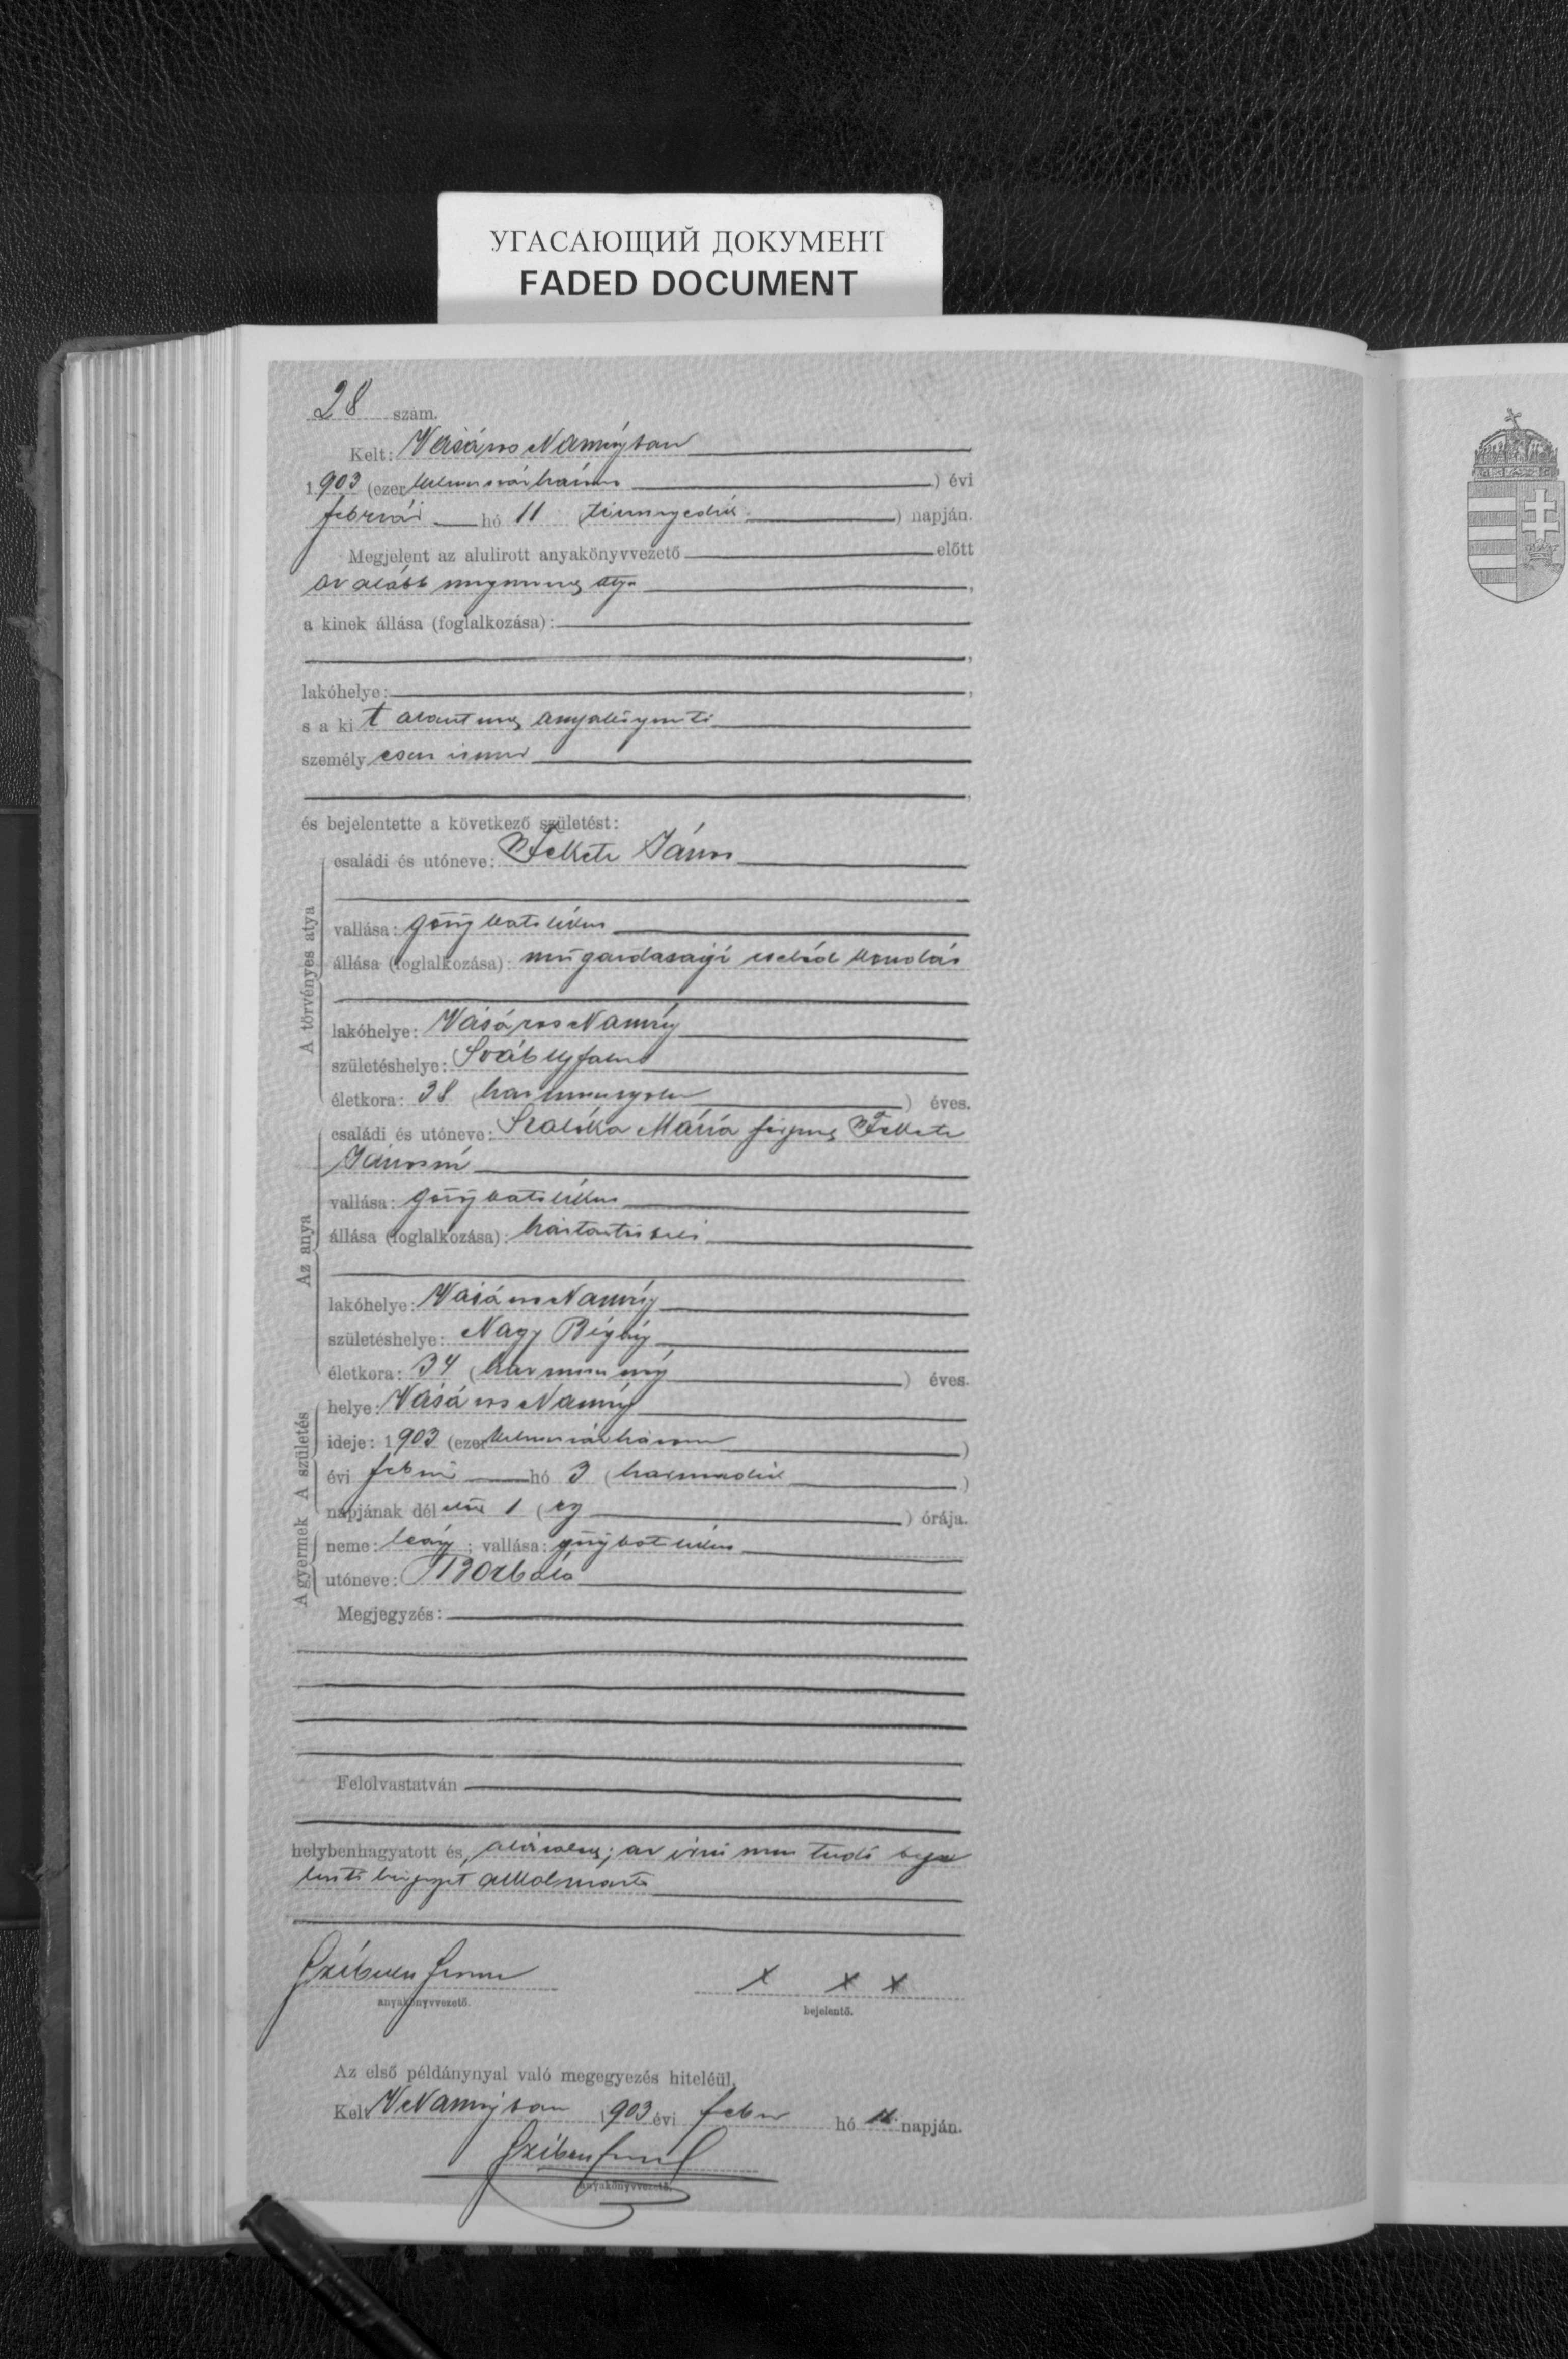 УГАСАЮЩИЙ ДОКУМЕНТ
FADED DOCUMENT
28 szám.
Kelt: Vásáros Naményban
1 903 (ezer kilenczszázhárom ) évi
február hó 11 tizenegyedik ) napján.
Megjelent az alulirott anyakönyvvezető előtt
az alább megnevezett atya ,
a kinek állása (foglalkozása):
,
lakóhelye: ,
s a ki t anyakönyvvezető
személy esen ismer
,
és bejelentette a következő születést:
A törvényes atya
családi és utóneve: Fekete János
vallása: görög katolikus
állása (foglalkozása): mezőgazdasági cseléd kondás
lakóhelye: Vásáros Namény
születéshelye:
életkora: 38 (harmincznyolcz ) éves.
Az anya
családi és utóneve: Mária férjezett Fekete
Jánosné
vallása: görög katolikus
állása (foglalkozása): háztartásbeli
lakóhelye: Vásáros Namény
születéshelye: Nagy Bégány
életkora: 34 (harmincznégy ) éves.
A születés
helye: Vásáros Namény
ideje: 1 903 (ezer kilenczszázhárom )
évi február hó 3 (harmadik )
napjának dél előtt 1 (egy ) órája.
A gyermek
neme: leány ; vallása: görög katolikus
utóneve: Borbála
Megjegyzés:
Felolvastatván
helybenhagyatott és, aláíratott; az írni nem tudó beje
lentő kézjegyét alkalmazta
anyakönyvvezető.
x x x
bejelentő.
Az első példánynyal való megegyezés hiteléül.
Kelt V Naményban 1903 évi febr hó 11. napján.
anyakönyvvezető.